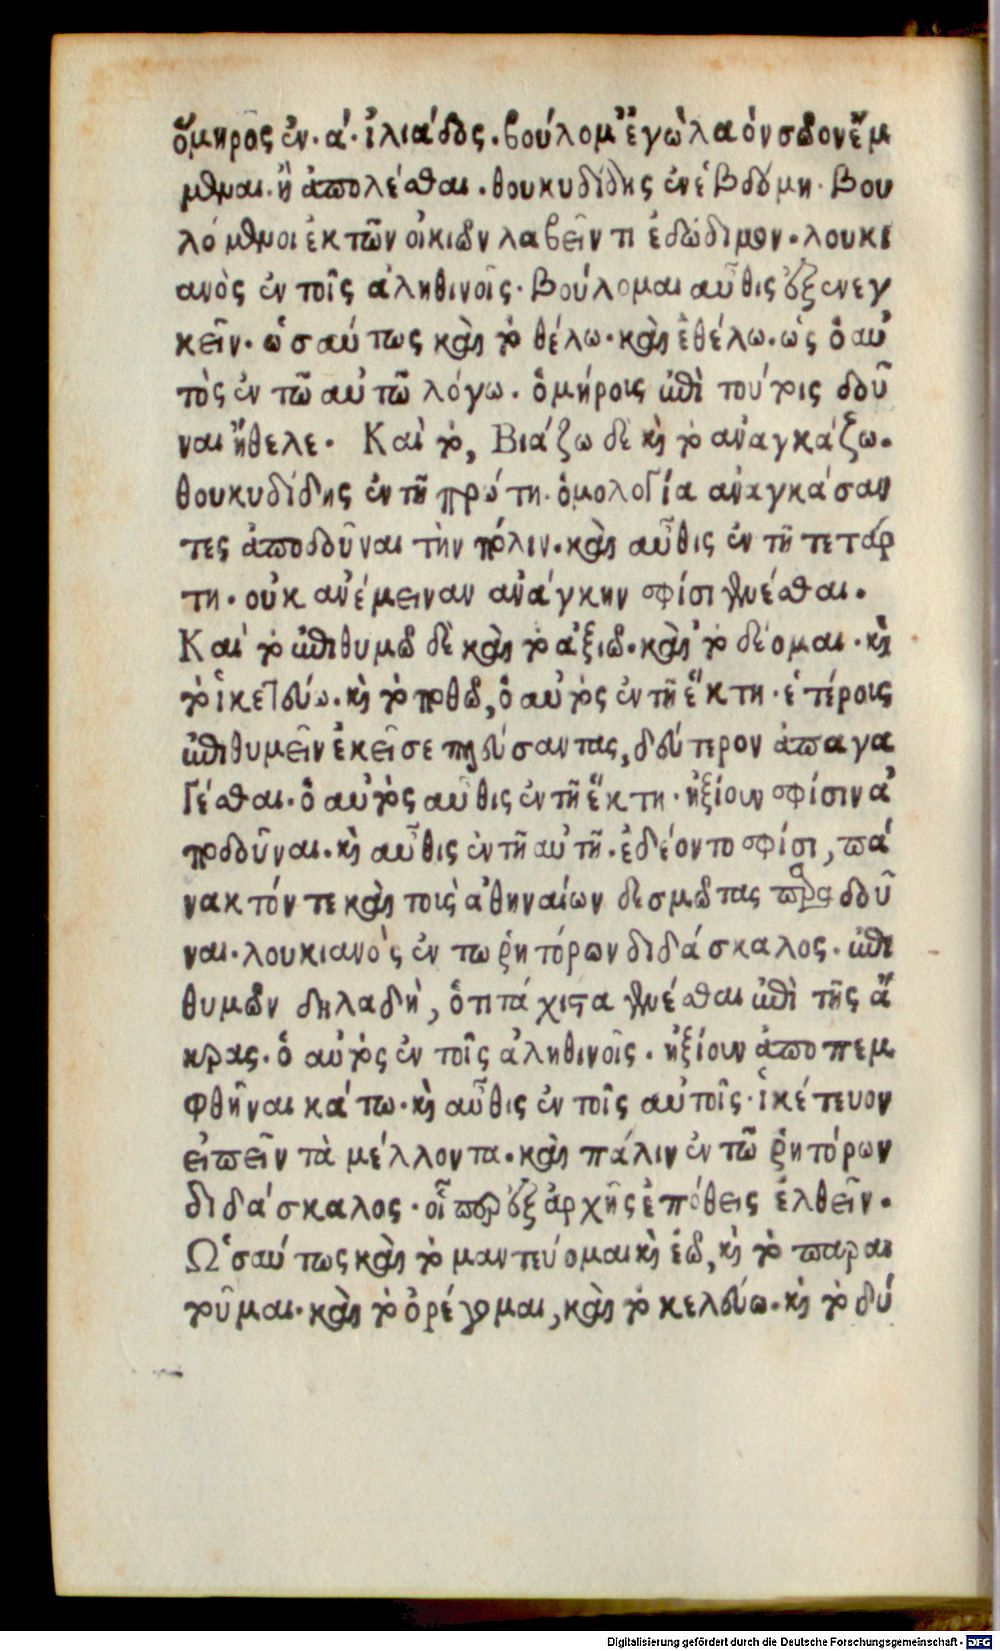 ὅμηρος ἐν·α΄·ἰλιάδος·βούλομ' ἐγὼ λαὸν σῶον ἔμ
μεναι·ἢ ἀπολέσθαι·θουκυδίδης ἐν ἑβδόμη·Βου
λόμενοι ἐκ τῶν οἰκιῶν λαβεῖν τι ἐδώδιμον·λουκι
ανὸς ἐν τοῖς ἀληθινοῖς·Βούλομαι αὖθις ἐξενεγ
κεῖν·ὡσαύτως καὶ τὸ θέλω·καὶ ἐθέλω·ὡς ὁ αὐ
τὸς ἐν τῶ αὐτῶ λόγω·ὁμήροις ἐπὶ τούτοις δοῦ
ναι ἤθελε· Καὶ τὸ, Βιάζω δὲ καὶ τὸ ἀναγκάζω·
θουκυδίδης ἐν τῆ πρώτη·ὁμολογία ἀναγκάσαν
τες ἀποδοῦναι τὴν πόλιν·καὶ αὖθις ἐν τῆ τετάρ
τη·οὐκ ἀνέμειναν ἀνάγκην σφίσι γενέσθαι·
Καὶ τὸ ἐπιθυμῶ δὲ καὶ τὸ ἀξιῶ·καὶ τὸ δέομαι·καὶ
τὸ ἱκετεύω·καὶ τὸ ποθῶ, ὁ αὐτὸς ἐν τῆ ἕκτη·ἑτέροις
ἐπιθυμεῖν ἐκεῖσε πλεύσαντας, δεύτερον ἀπαγα
γέσθαι·ὁ αὐτὸς αὖθις ἐν τῆ ἕκτη·ἠξίουν σφίσιν ἀ
ποδοῦναι·καὶ αὖθις ἐν τῆ αὐτῆ·ἐδέοντο σφίσι, πά
νακτόν τε καὶ τοὺς ἀθηναίων δεσμώτας παραδοῦ
ναι·λουκιανὸς ἐν τω ῥητόρων διδάσκαλος·ἐπι
θυμῶν δηλαδὴ, ὅτι τάχιστα γενέσθαι ἐπὶ τῆς ἄ
κρας·ὁ αὐτὸς ἐν τοῖς ἀληθινοῖς·ἠξίουν ἀποπεμ
φθῆναι κάτω·καὶ αὖθις ἐν τοῖς αὐτοῖς·ἱκέτευον
εἰπεῖν τὰ μέλλοντα·καὶ πάλιν ἐν τῶ ῥητόρων
διδάσκαλος·οἷ περ ἐξ ἀρχῆς ἐπόθεις ἐλθεῖν·
Ὡσαύτως καὶ τὸ μαντεύομαι καὶ ἐῶ, καὶ τὸ παραι
τοῦμαι·καὶ τὸ ὀρέγομαι, καὶ τὸ κελεύω·καὶ τὸ δύ
Digitalisierung gefördert durch die Deutsche Forschungsgemeinschaft - DFG